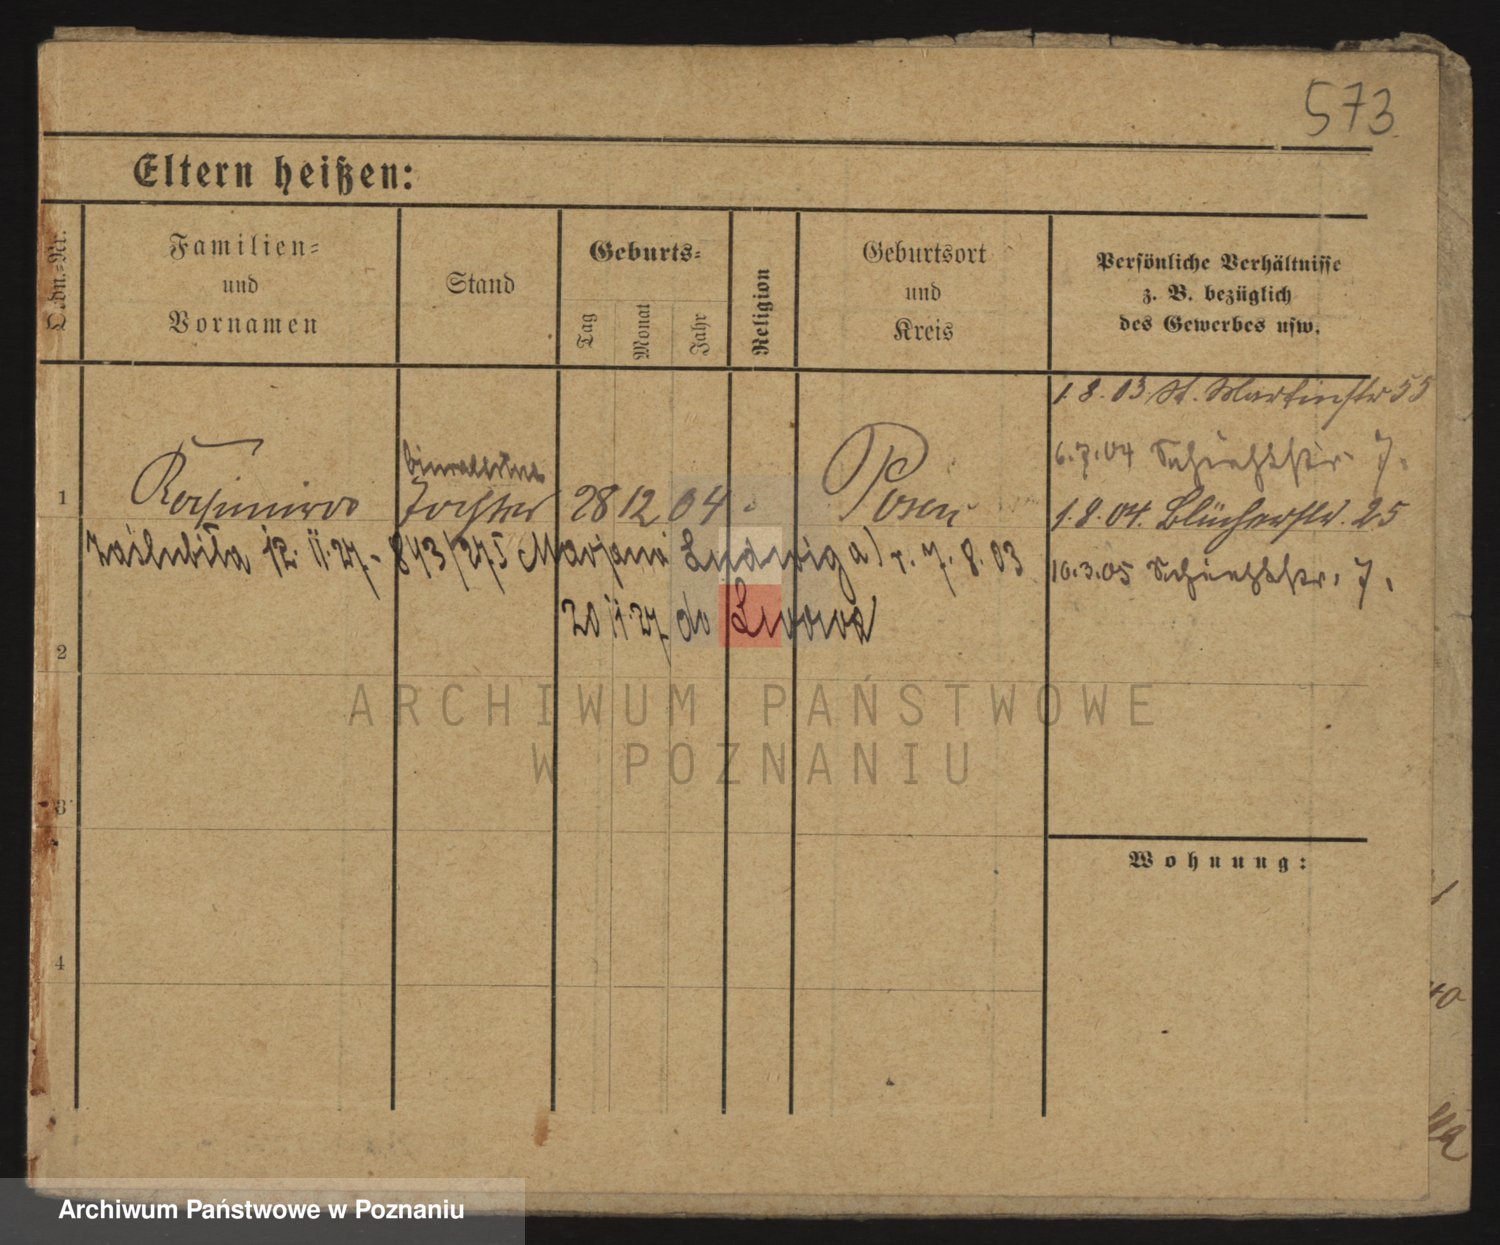 573
Eltern heißen:
Ordn.-Nr.
Familien-
und
Vornamen
Stand
Geburts-
Tag
Monat
Jahr
Religion
Geburtsort
und
Kreis
Persönliche Verhältnisse
z. B. bezüglich
des Gewerbes usw.
1.8.03. St. Martinstr 55
6.7.04 7.
1 Tochter 28 12 04 Posen
1.8.04. Blücherstr. 25
zaślubiła 12.11.27 - 843/275 Ludwig a) r. 7.8.03
10.3.05 7.
20 11 27 do Lwowa
2
3
4
Wohnung:
ARCHIWUM PAŃSTWOWE
W POZNANIU
Archiwum Państwowe w Poznaniu